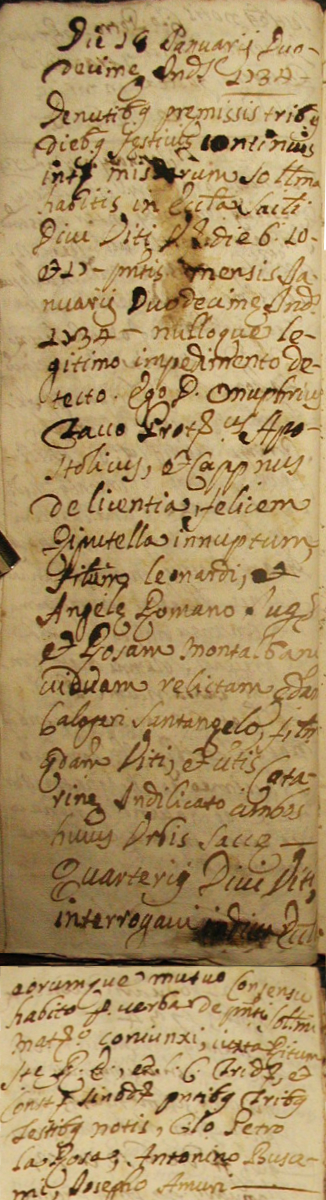 Die 18 Januarij Duo-
decime Ind.s 1734 -
Denutibq premissis tribq
diebq festivis continuis
intr missarum sollmia
habitis in Eccl.a Sacli
Divi Viti die 6. 10 -
et 17 - pntis mensis Ja-
nuarij Duodecime Ind.s
1734 - nulloque le-
gitimo impedimento de-
tecto. Ego D. Onuphrius
Zacco Prot.s Apo-
stolicus, et Cappnus
de licentia, felicem
Diputella innuptum
filium leonardi, et
Angele Romano Jug.
et Rosam Montalbano
viduam relictam qdam
Calogeri Santangelo, fil.
qdam Viti, et vtis Cata-
rine Indilicato ambos
huius Vrbis Sacce -
Quarterij Divi Viti,
interrogavi
eorumque mutuo Consensu
habito p. verba de pnti
matr.o coniunxi, iuxta Ritum
Ste R. E., et S. C. Trid.,
Const. Sinod. pntibq Tribq
Testibq notis, Clo Petro
la Rosa, Antonino Busca-
mi, Joseph Amuri -